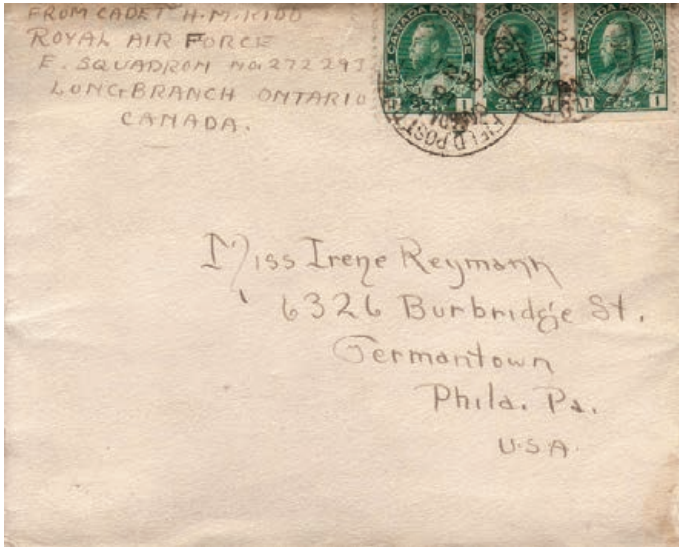 FROM CADET H.M. KIDD
ROYAL AIR FORCE
E. SQUADRON NO. 272293
LONG BRANCH ONTARIO
CANADA.
CANADA POSTAGE CANADA POSTAGE CANADA POSTAGE
1 1 1 CENT 1
FIELD POST
Miss Irene Reymann
6326 Burbridge St.
Germantown
Phila. Pa.
U.S.A.